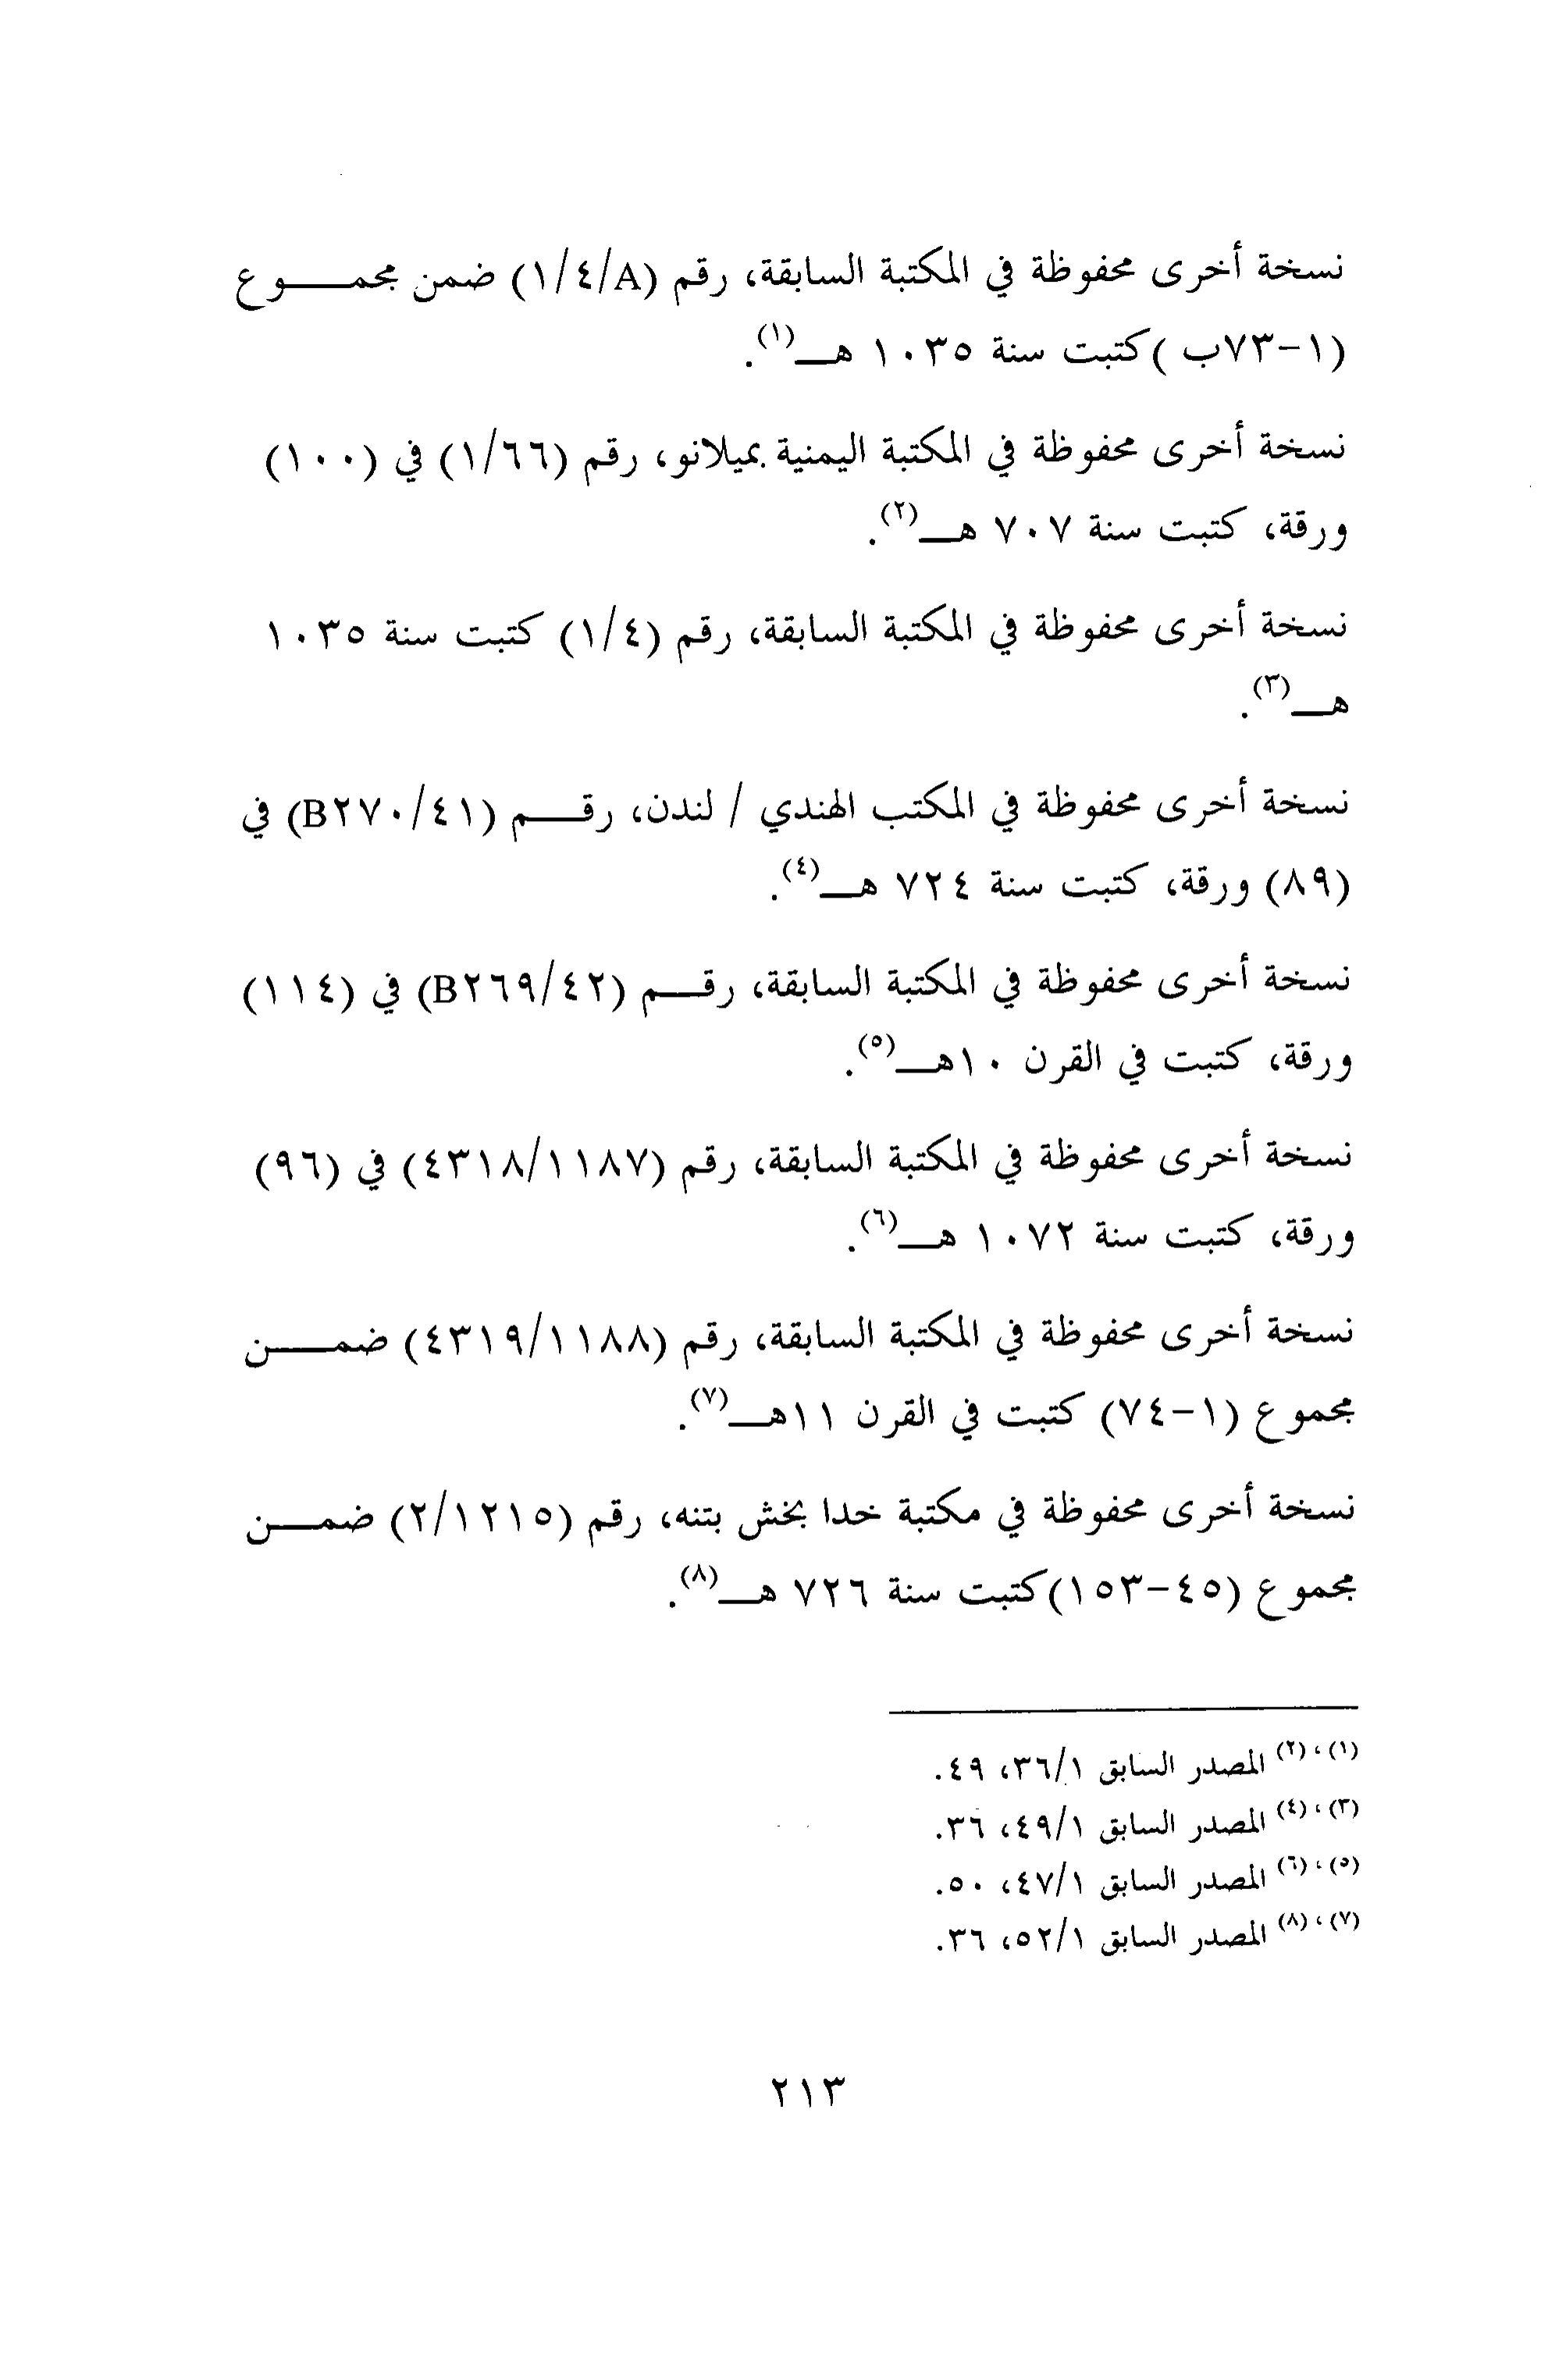 نسخة أخرى محفوظة في المكتبة السابقة، رقم (١/٤/A) ضمن مجمـــوع
(١-٧٣ب )كتبت سنة ١٠٣٥ هــ(١).
نسخة أخرى محفوظة في المكتبة اليمنية بميلانو، رقم (١/٦٦) في (١٠٠)
ورقة، كتبت سنة ٧٠٧ هــ(٢).
نسخة أخرى محفوظة في المكتبة السابقة، رقم (١/٤) كتبت سنة ١٠٣٥
هــ(٣).
نسخة أخرى محفوظة في المكتب الهندي / لندن، رقـــم (B٢٧٠/٤١) في
(٨٩) ورقة، كتبت سنة ٧٢٤ هــ(٤).
نسخة أخرى محفوظة في المكتبة السابقة، رقـــم (B٢٦٩/٤٢) في (١١٤)
ورقة، كتبت في القرن ١٠هــ(٥).
نسخة أخرى محفوظة في المكتبة السابقة، رقم (٤٣١٨/١١٨٧) في (٩٦)
ورقة، كتبت سنة ١٠٧٢ هــ(٦).
نسخة أخرى محفوظة في المكتبة السابقة، رقم (٤٣١٩/١١٨٨) ضمـــن
مجموع (١-٧٤) كتبت في القرن ١١هــ(٧).
نسخة أخرى محفوظة في مكتبة خدا بخش بتنه، رقم (٢/١٢١٥) ضمـــن
مجموع (٤٥-١٥٣)كتبت سنة ٧٢٦ هــ(٨).
(١)، (٢) المصدر السابق ٣٦/١، ٤٩.
(٣)، (٤) المصدر السابق ٤٩/١، ٣٦.
(٥)، (٦) المصدر السابق ٤٧/١، ٥٠.
(٧)، (٨) المصدر السابق ٥٢/١، ٣٦.
٢١٣